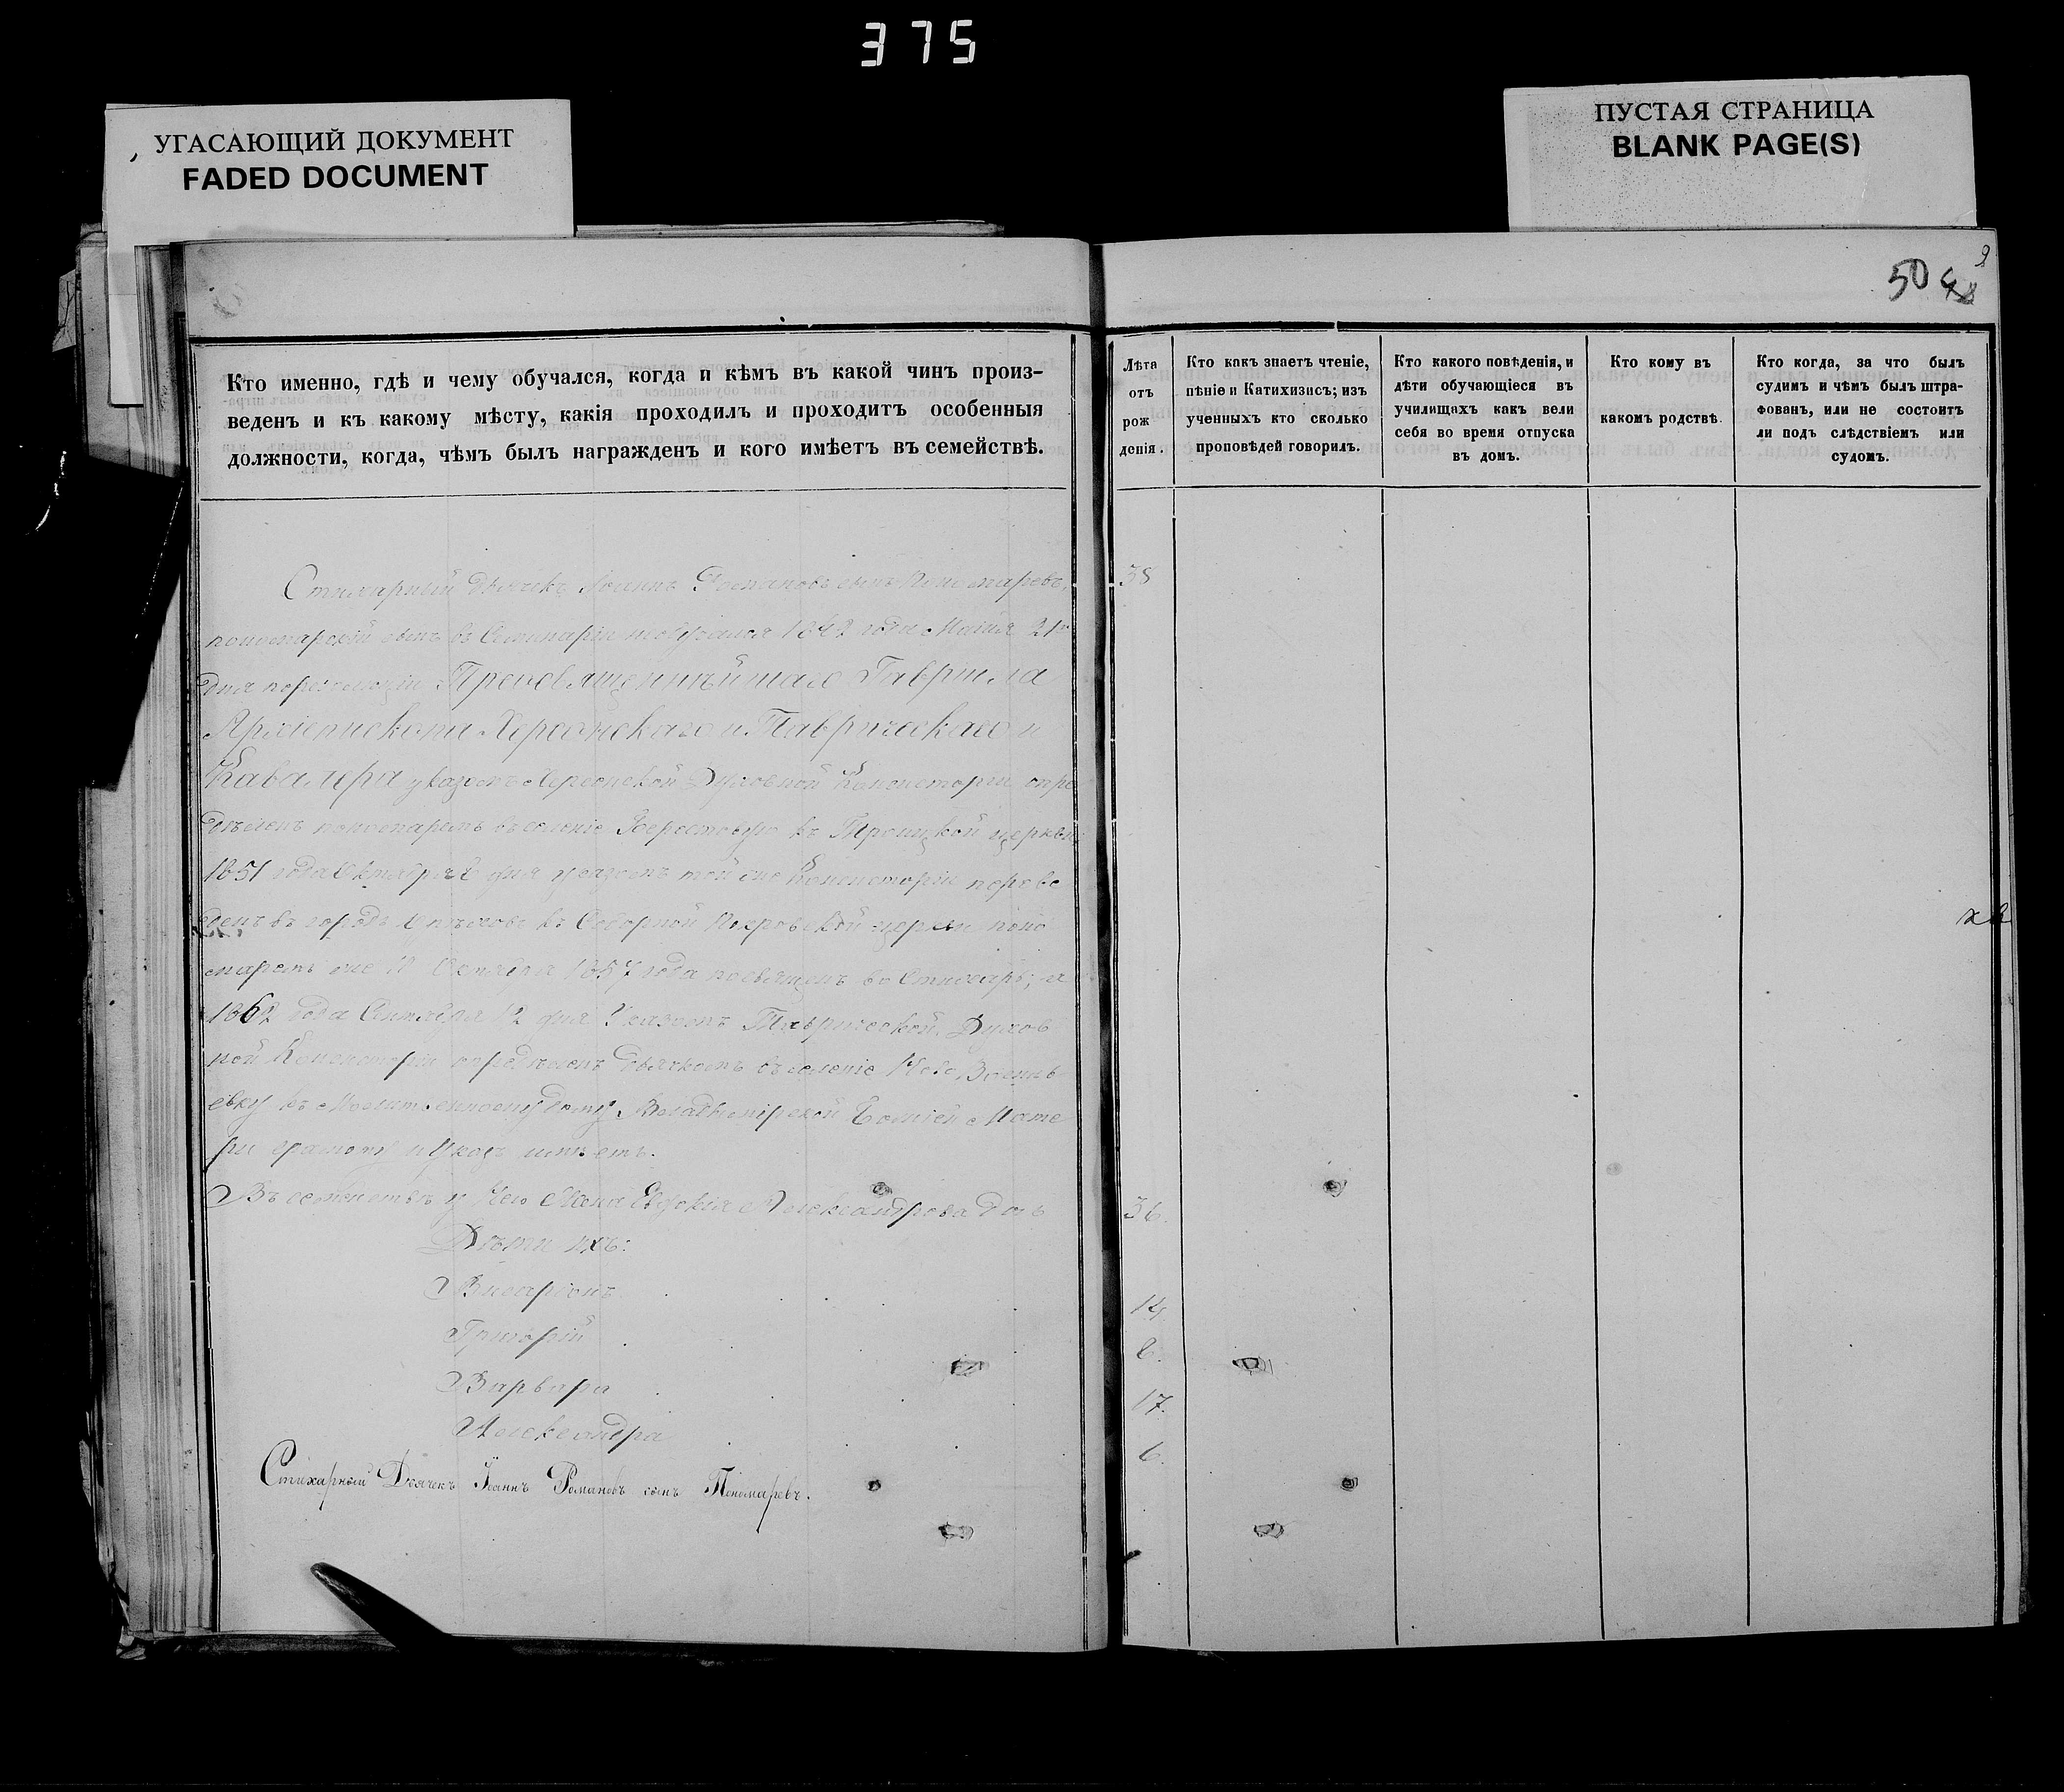 375
УГАСАЮЩИЙ ДОКУМЕНТ
FADED DOCUMENT
ПУСТАЯ СТРАНИЦА
BLANK PAGE(S)
9
50
Кто именно, гдѣ и чему обучался, когда и кѣмъ въ какой чинъ произ-
веденъ и къ какому мѣсту, какія проходилъ и проходитъ особенныя
должности, когда, чѣмъ былъ награжденъ и кого имѣетъ въ семействѣ.
Лѣта
отъ
рож
денія.
Кто какъ знаетъ чтеніе,
пѣніе и Катихизисъ; изъ
ученныхъ кто сколько
проповѣдей говорилъ.
Кто какого повѣденія, и
дѣти обучающіеся въ
училищахъ какъ вели
себя во время отпуска
въ домъ.
Кто кому въ
какомъ родствѣ.
Кто когда, за что былъ
судимъ и чѣмъ былъ штра-
фованъ, или не состоитъ
ли подъ слѣдствіемъ или
судомъ.
Стихарный Дьячекъ Іоаннъ Романовъ сынъ Пономаревъ, 38
пономарскій сынъ въ Семинаріи не обучался 1842 года Маія 21го
дня по резолюціи Преосвященнѣйшаго Гавріила
Архіепископа Херсонскаго и Таврическаго и
Кавалера указомъ Херсонской Духовной Консисторіи опре
дѣленъ пономаремъ въ селеніе Берестовую къ Троицкой церкви
1851 года Октября дня указомъ той же Консисторіи переве
денъ въ городъ Орѣховъ къ Соборной Покровской церкви поно
маремъ же 11 Октября 1857 года посвященъ во Стихарь; а
1862 года Сентября 12 дня Указомъ Таврической Духов
ной Консисторіи опредѣленъ дьячкомъ въ селеніе Ново
евку къ Молитвенному дому Владимірской Божіей Мате
ри грамоту и Указъ имѣетъ.
Въ семействѣ у Него Жена Евдокія Александрова дочь 36.
Дѣти ихъ:
Виссаріонъ 14.
Григорій 8.
Варвара 17.
Александра 6.
Стихарный Дьячекъ Іоаннъ Романовъ сынъ Пономаревъ.